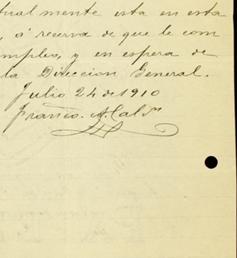 tualmente esta en esta
, á reserva de que le com
mplos, y en espera de
la Direccion General.
Julio 24 de 1910
Franco. A. Cal